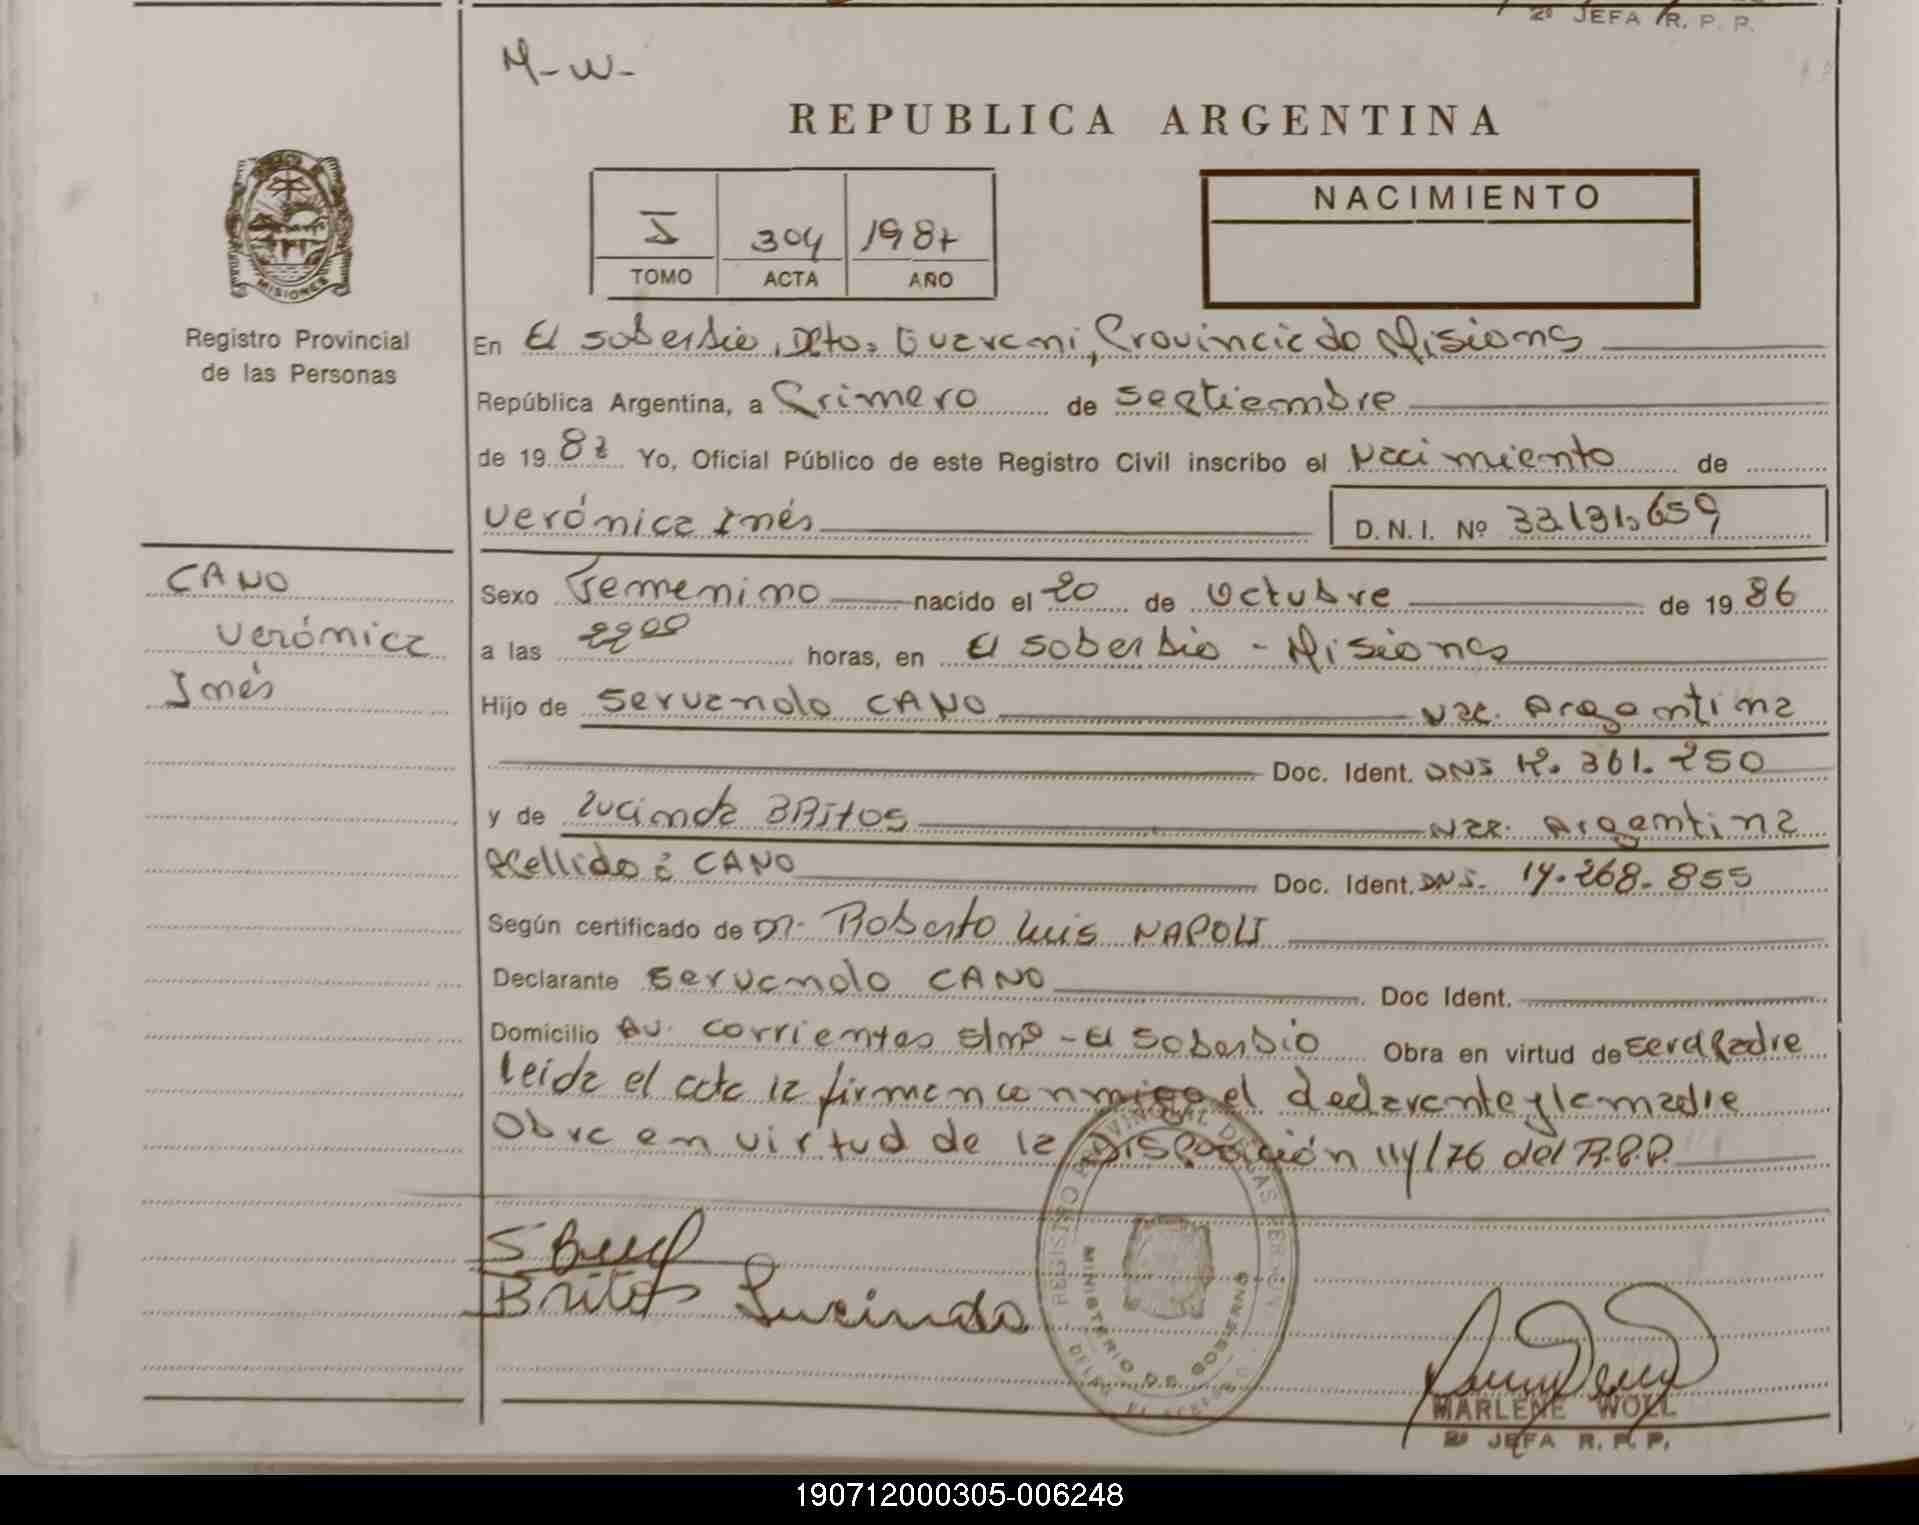 2º JEFA R. P. P.
M-W-
REPUBLICA ARGENTINA
I 304 1987
TOMO ACTA AÑO
NACIMIENTO
MISIONES
Registro Provincial
de las Personas
En El soberbio, Dpto. Guarani, Provincia de Misiones
República Argentina, a Primero de septiembre
de 19 87 Yo, Oficial Público de este Registro Civil inscribo el Nacimiento de
Verónica Inés
D.N.I. Nº
CANO
Verónica
Inés
Sexo Femenino nacido el 20 de Octubre de 19 86
a las 2200 horas, en El soberbio - Misiones
Hijo de Servando CANO Nac. Argentina
Doc. Ident. DNI 361.250
y de Lucinda BRITOS Nac. Argentina
Apellido: CANO Doc. Ident. DNI. 14.268.855
Según certificado de Dr. Roberto Luis NAPOLI
Declarante Servando CANO Doc Ident.
Domicilio Av. Corrientes s/nº - El Soberbio Obra en virtud de ser el Padre
Leída el acta la firman conmigo el declarante y la madre
Obra en virtud de la Disposición 114/76 del R.P.P.
REGISTRO PROVINCIAL DE LAS PERSONAS
MINISTERIO DE GOBIERNO
Britos Lucinda
MARLENE WOLL
2º JEFA R. P. P.
190712000305-006248